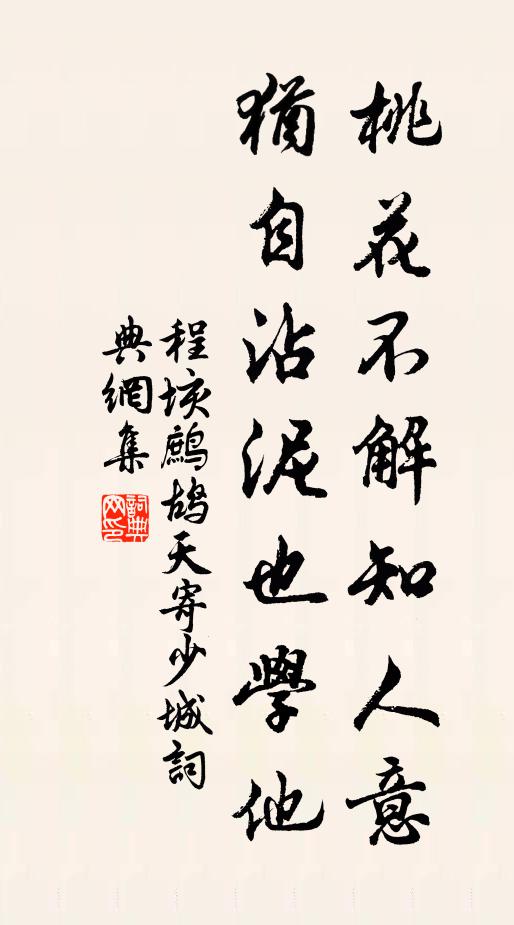 桃花不解知人意
猶自沾泥也學他
程垓鷓鴣天寄少城詞
典網集
詞典網印